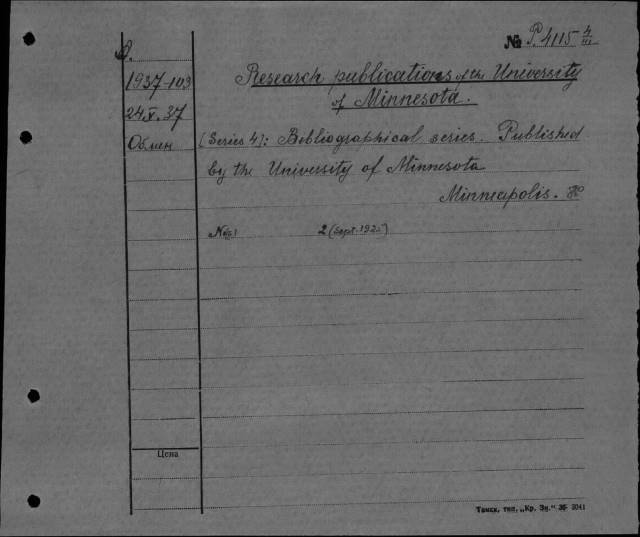 № P. 4115 4/III
1937-103
Research publications of the University
of Minnesota.
24 X. 37
Обмен
[Series 4]: Bibliographical series. Published
by the University of Minnesota
Minneapolis. 8°
2 (Sept. 1925)
Цена
Томск, тип. „Кр. Зн.“ 36 3041